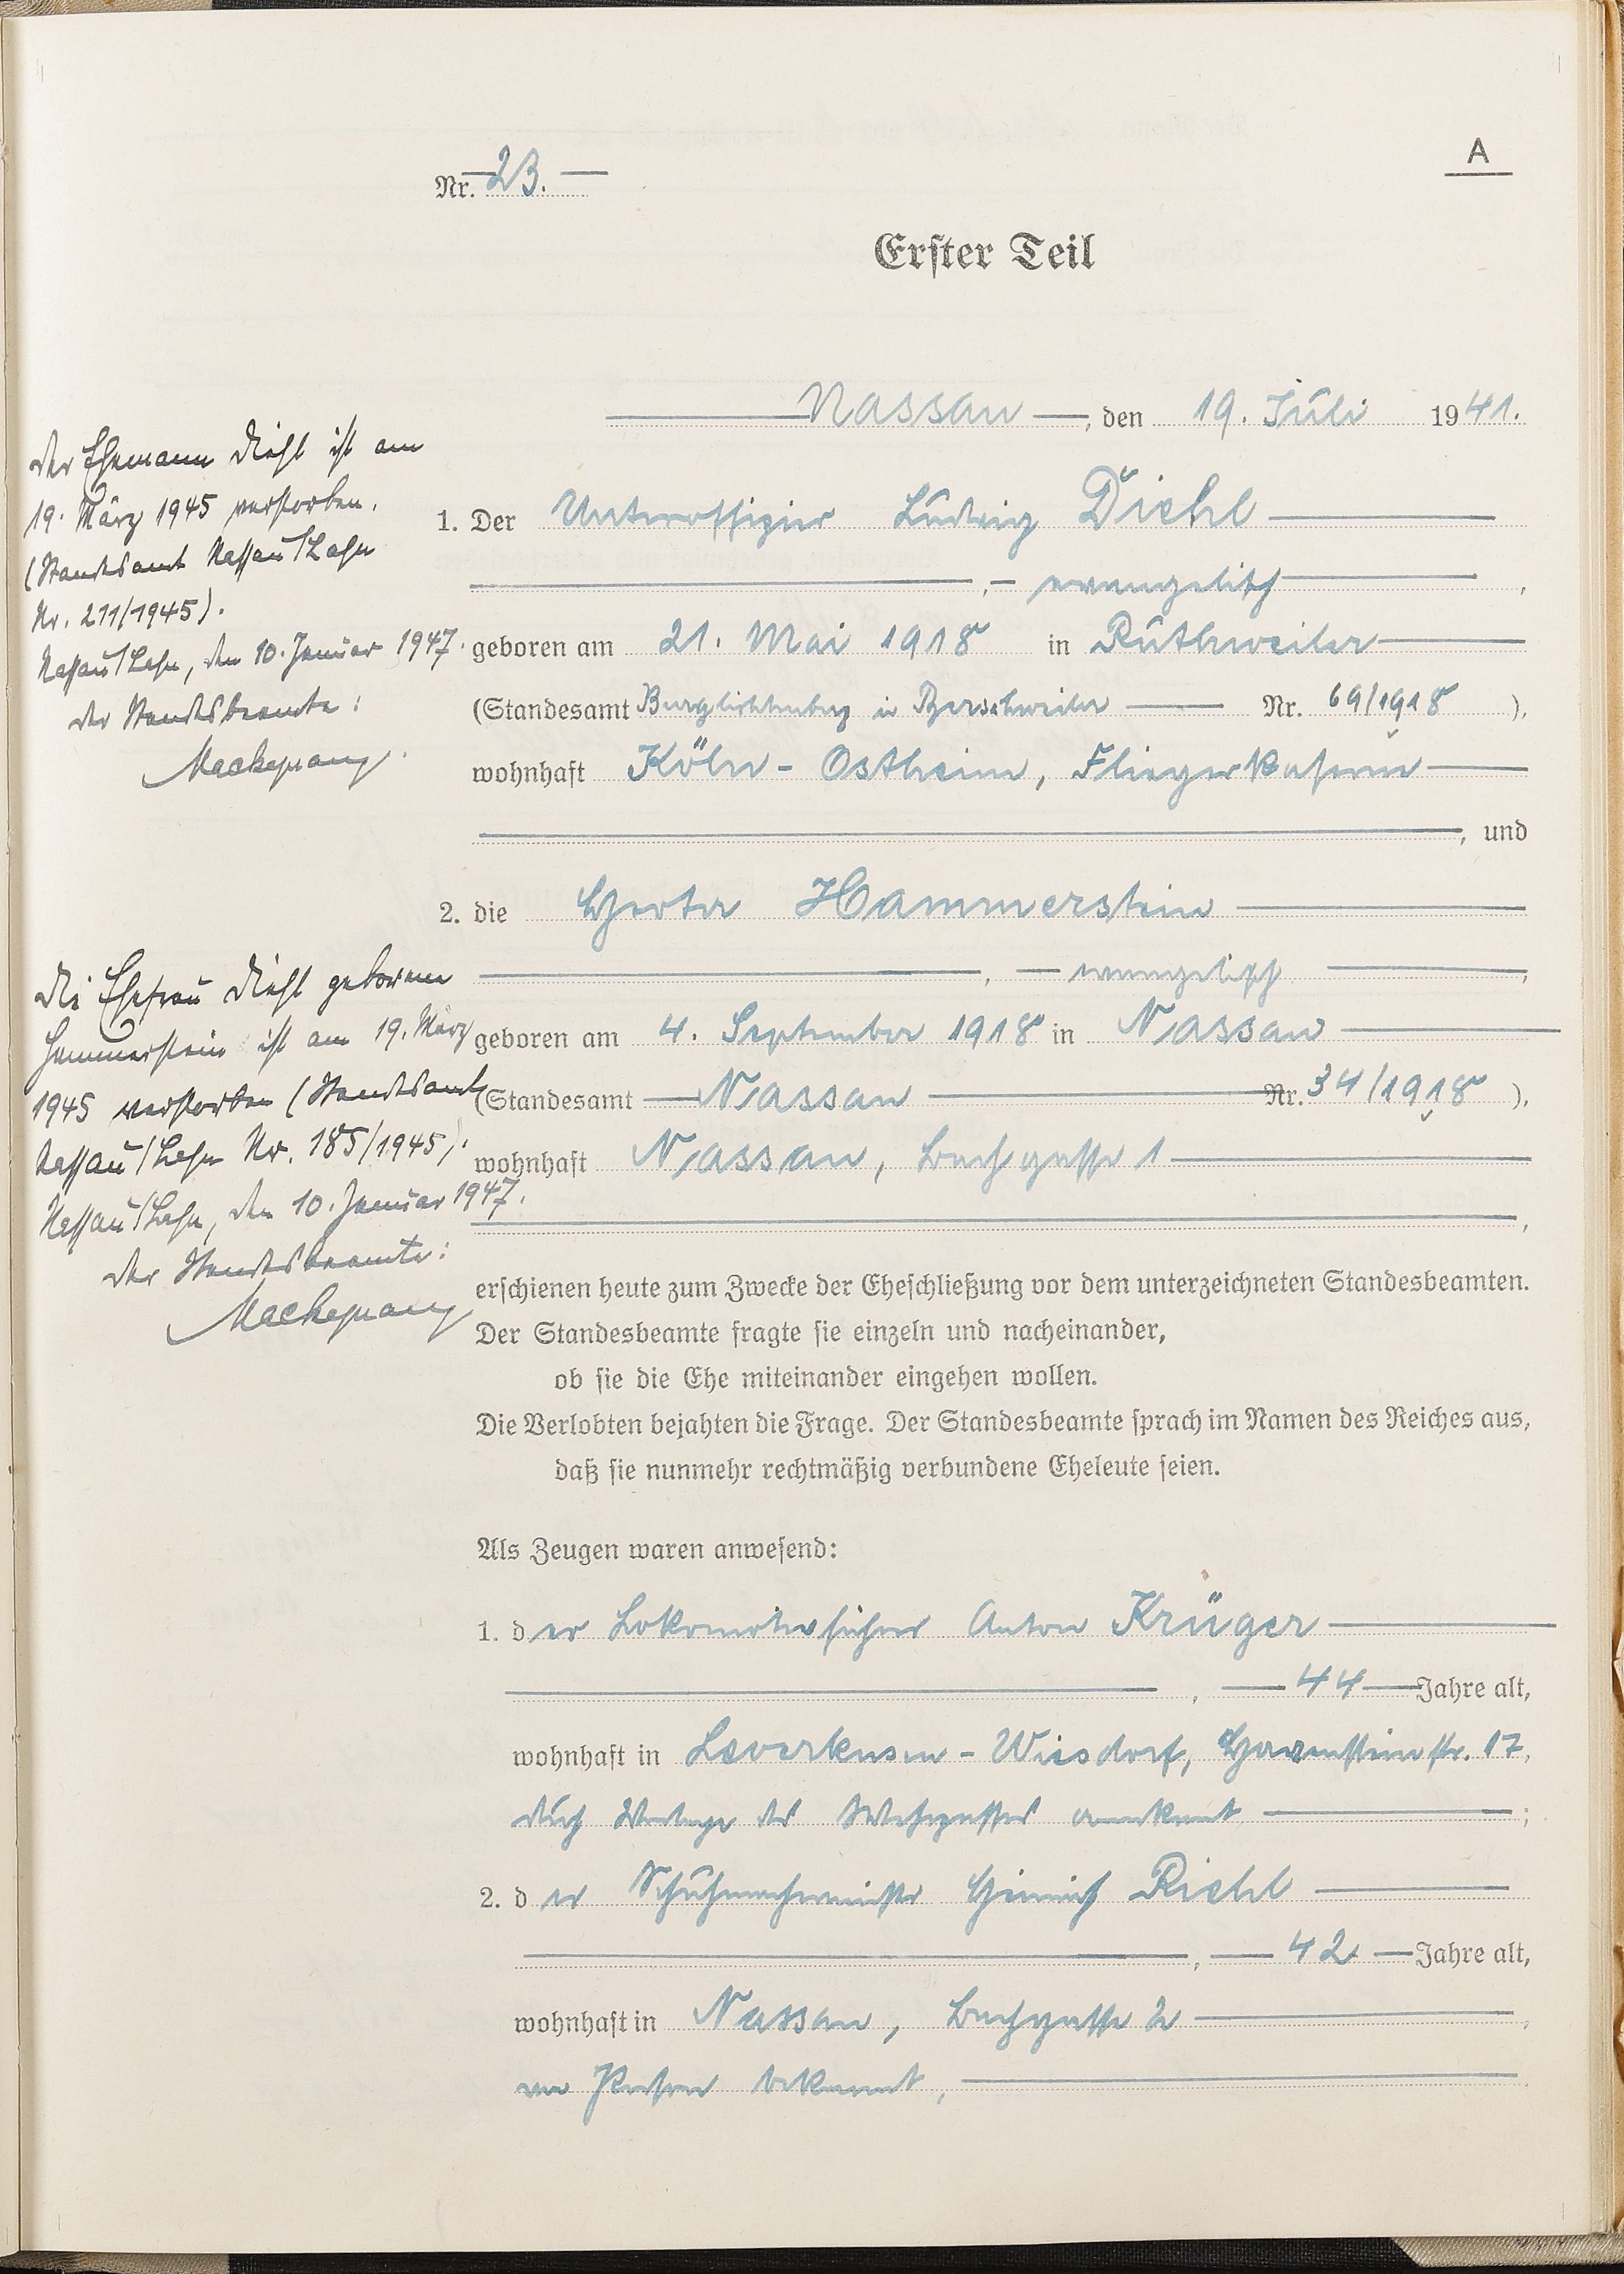 A
Nr. 23.
Erster Teil
Nassau, den 19. Juli 1941.
1. Der Unteroffizier Ludwig Diehl
, evangelisch,
geboren am 21. Mai 1918 in Ruthweiler
(Standesamt Burglichtenberg in Nr. 69/1918),
wohnhaft Köln-Ostheim, Fliegerkaserne
, und
2. die Herta Hammerstein
, evangelisch,
geboren am 4. September 1918 in Nassau
(Standesamt Nassau Nr. 34/1918),
wohnhaft Nassau, Bachgasse 1
,
erschienen heute zum Zwecke der Eheschließung vor dem unterzeichneten Standesbeamten.
Der Standesbeamte fragte sie einzeln und nacheinander,
ob sie die Ehe miteinander eingehen wollen.
Die Verlobten bejahten die Frage. Der Standesbeamte sprach im Namen des Reiches aus,
daß sie nunmehr rechtmäßig verbundene Eheleute seien.
Als Zeugen waren anwesend:
1. der Lokomotivführer Anton Krüger
, 44 Jahre alt,
wohnhaft in Leverkusen-Wiesdorf, 17,
durch Vorlage des Wehrpasses anerkannt;
2. der Schuhmachermeister Heinrich Riehl
, 42 Jahre alt,
wohnhaft in Nassau, Bachgasse 2,
von Person bekannt,
Der Ehemann Diehl ist am
19. März 1945 verstorben.
(Standesamt Nassau/Lahn
Nr. 211/1945).
Nassau/Lahn, den 10. Januar 1947.
Der Standesbeamte:
Die Ehefrau Diehl geborene
Hammerstein ist am 19. März
1945 verstorben (Standesamt
Nassau/Lahn Nr. 185/1945).
Nassau/Lahn, den 10. Januar 1947.
Der Standesbeamte: